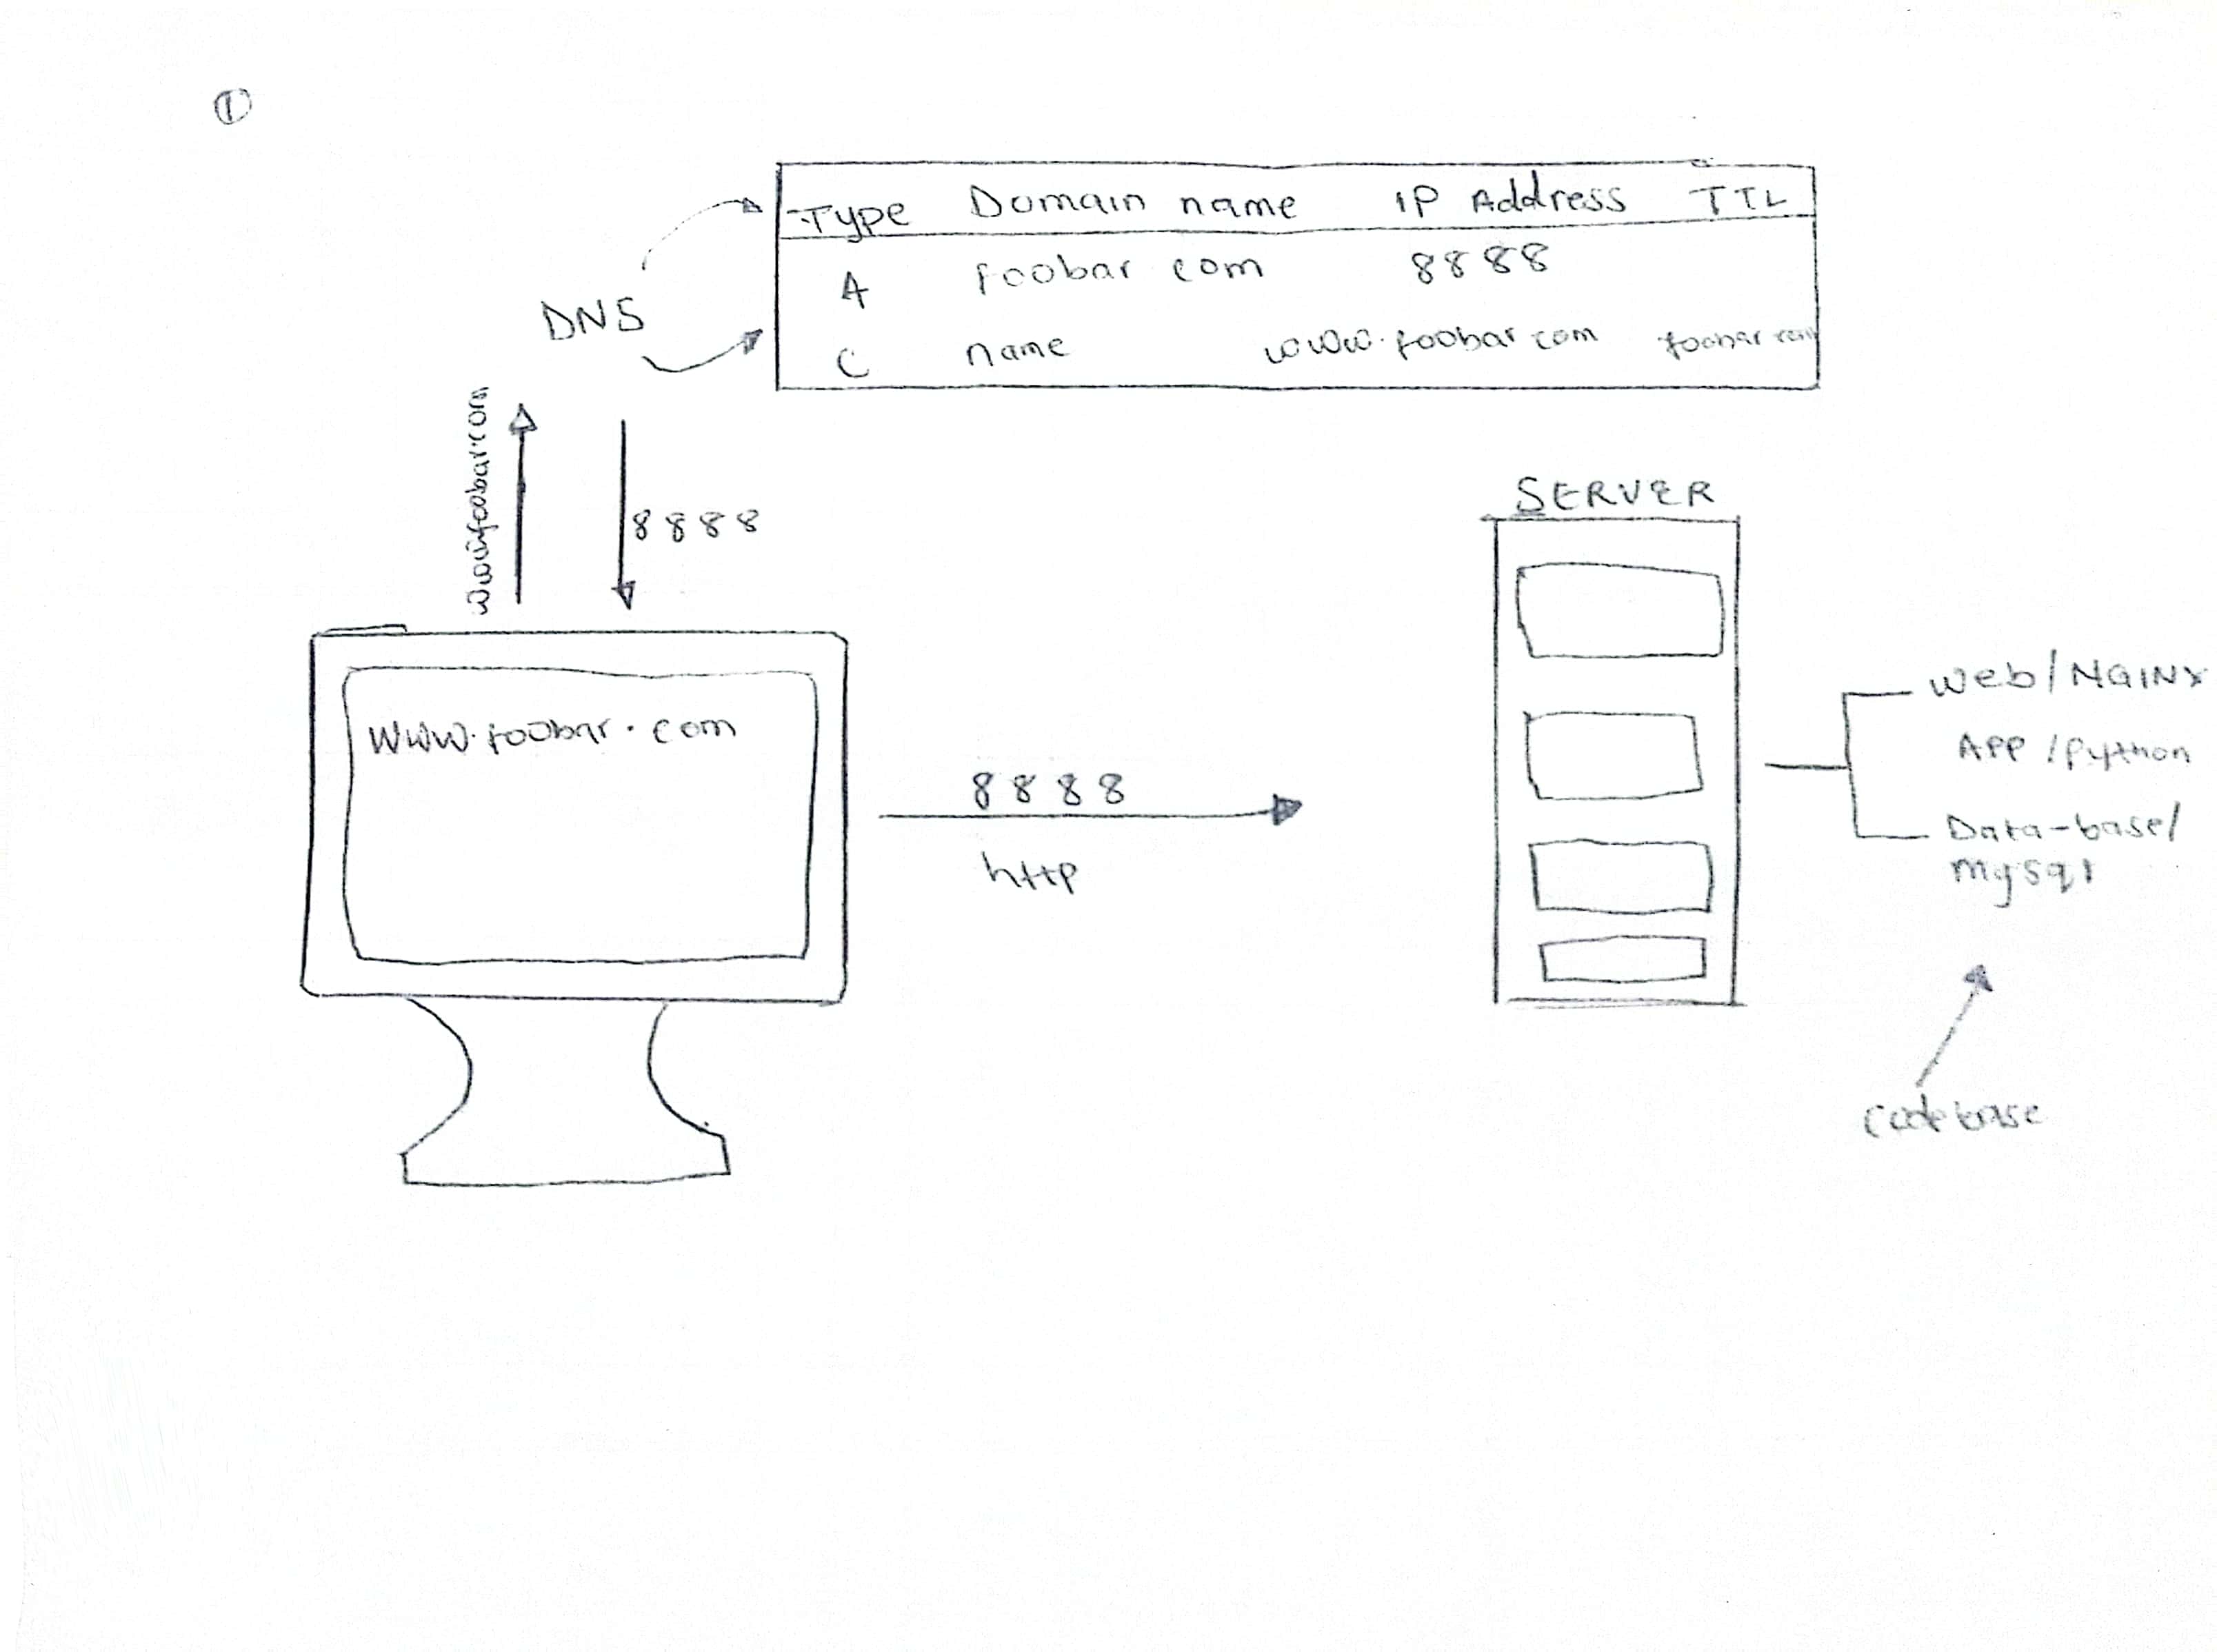 ①
Type Domain name IP Address TTL
A foobar com 8888
C name www.foobar com foobar com
DNS
www.foobar.com
8888
SERVER
www.foobar.com
8888
http
Web/NGINX
APP/python
Data-base/
mysql
codebase